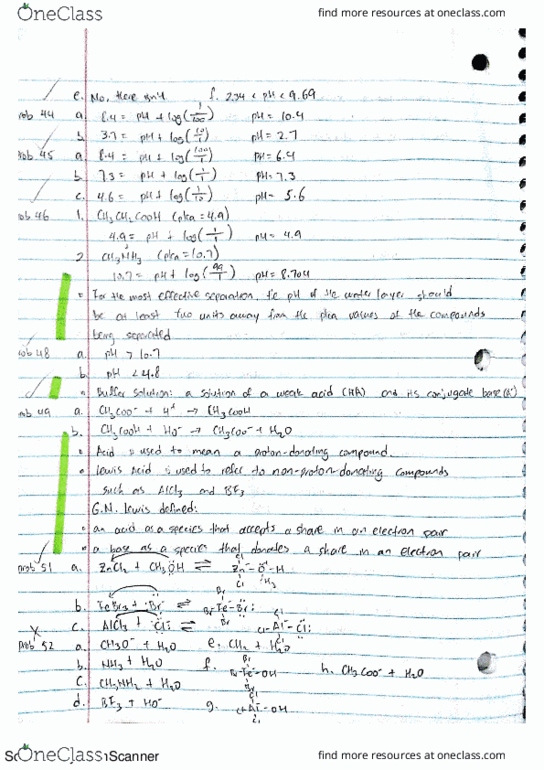 OneClass find more resources at oneclass.com
e. No, there isn't f. 2.34 < pH < 9.69
prob 44 a. 8.4 = pH + log(1/100) pH = 10.4
b. 3.7 = pH + log(10/1) pH = 2.7
prob 45 a. 8.4 = pH + log(100/1) pH = 6.4
b. 7.3 = pH + log(1/1) pH = 7.3
c. 4.6 = pH + log(1/10) pH = 5.6
prob 46 1. CH3CH2COOH (pka = 4.9)
4.9 = pH + log(1/1) pH = 4.9
2. CH3NH3 (pka = 10.7)
10.7 = pH + log(99/1) pH = 8.704
For the most effective separation, the pH of the water layer should
be at least two units away from the pka values of the compounds
being separated
prob 48 a. pH > 10.7
b. pH < 4.8
Buffer solution: a solution of a weak acid (HA) and its conjugate base (A-)
prob 49 a. CH3COO- + H+ → CH3COOH
b. CH3COOH + HO- → CH3COO- + H2O
Acid is used to mean a proton-donating compound.
Lewis Acid is used to refer to non-proton-donating compounds
such as AlCl3 and BF3
G.N. Lewis defined:
an acid as a species that accepts a share in an electron pair
a base as a species that donates a share in an electron pair
prob 51 a. ZnCl2 + CH3OH ⇌ Cl Zn - O - H Cl CH3
b. FeBr3 + :Br: ⇌ Br Br-Fe-Br: Br
c. AlCl3 + :Cl: ⇌ Cl Cl-Al-Cl: Cl
X prob 52 a. CH3O- + H2O e. + H2O
b. NH3 + H2O f. Br Br-Fe-OH Br h. CH3COO- + H2O
c. CH3NH2 + H2O
d. BF3 + HO- g. Cl Cl-Al-OH Cl
OneClass Scanner find more resources at oneclass.com